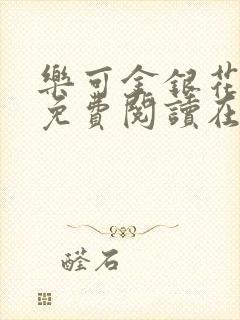 樂可金銀花
免費閱讀在
醛石